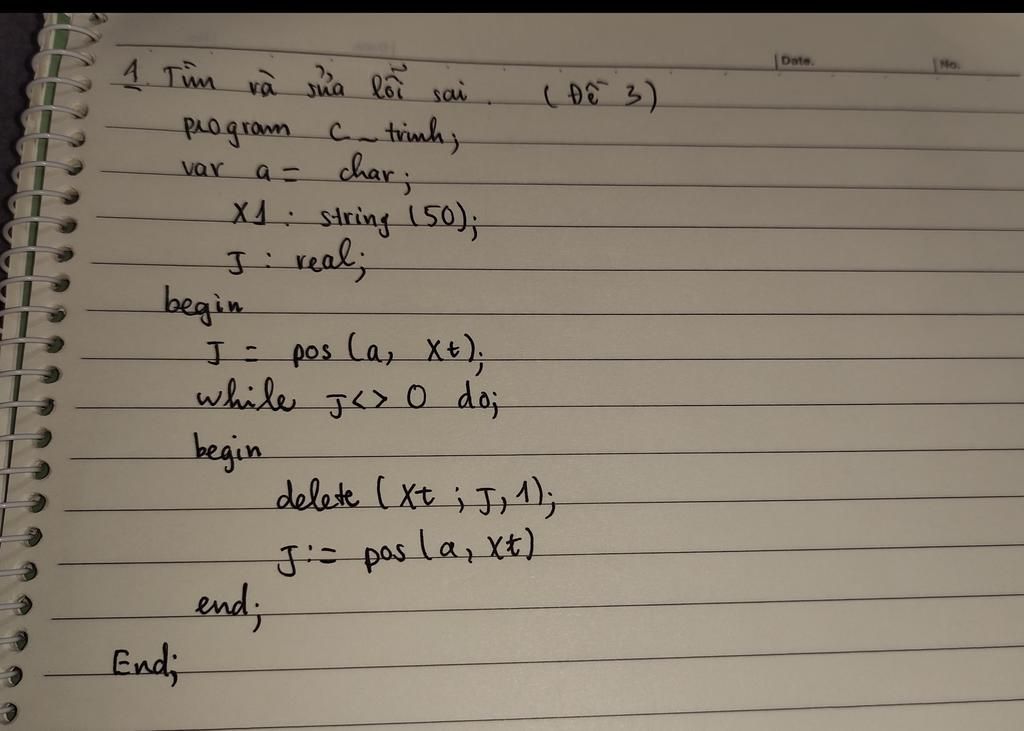 Date.
No.
1. Tìm và sửa lỗi sai. (Đề 3)
program c_trinh;
var a = char;
X1 : string (50);
J : real;
begin
J = pos (a, Xt);
while J<> 0 do;
begin
delete (Xt ; J, 1);
J := pos (a, Xt)
end;
End;